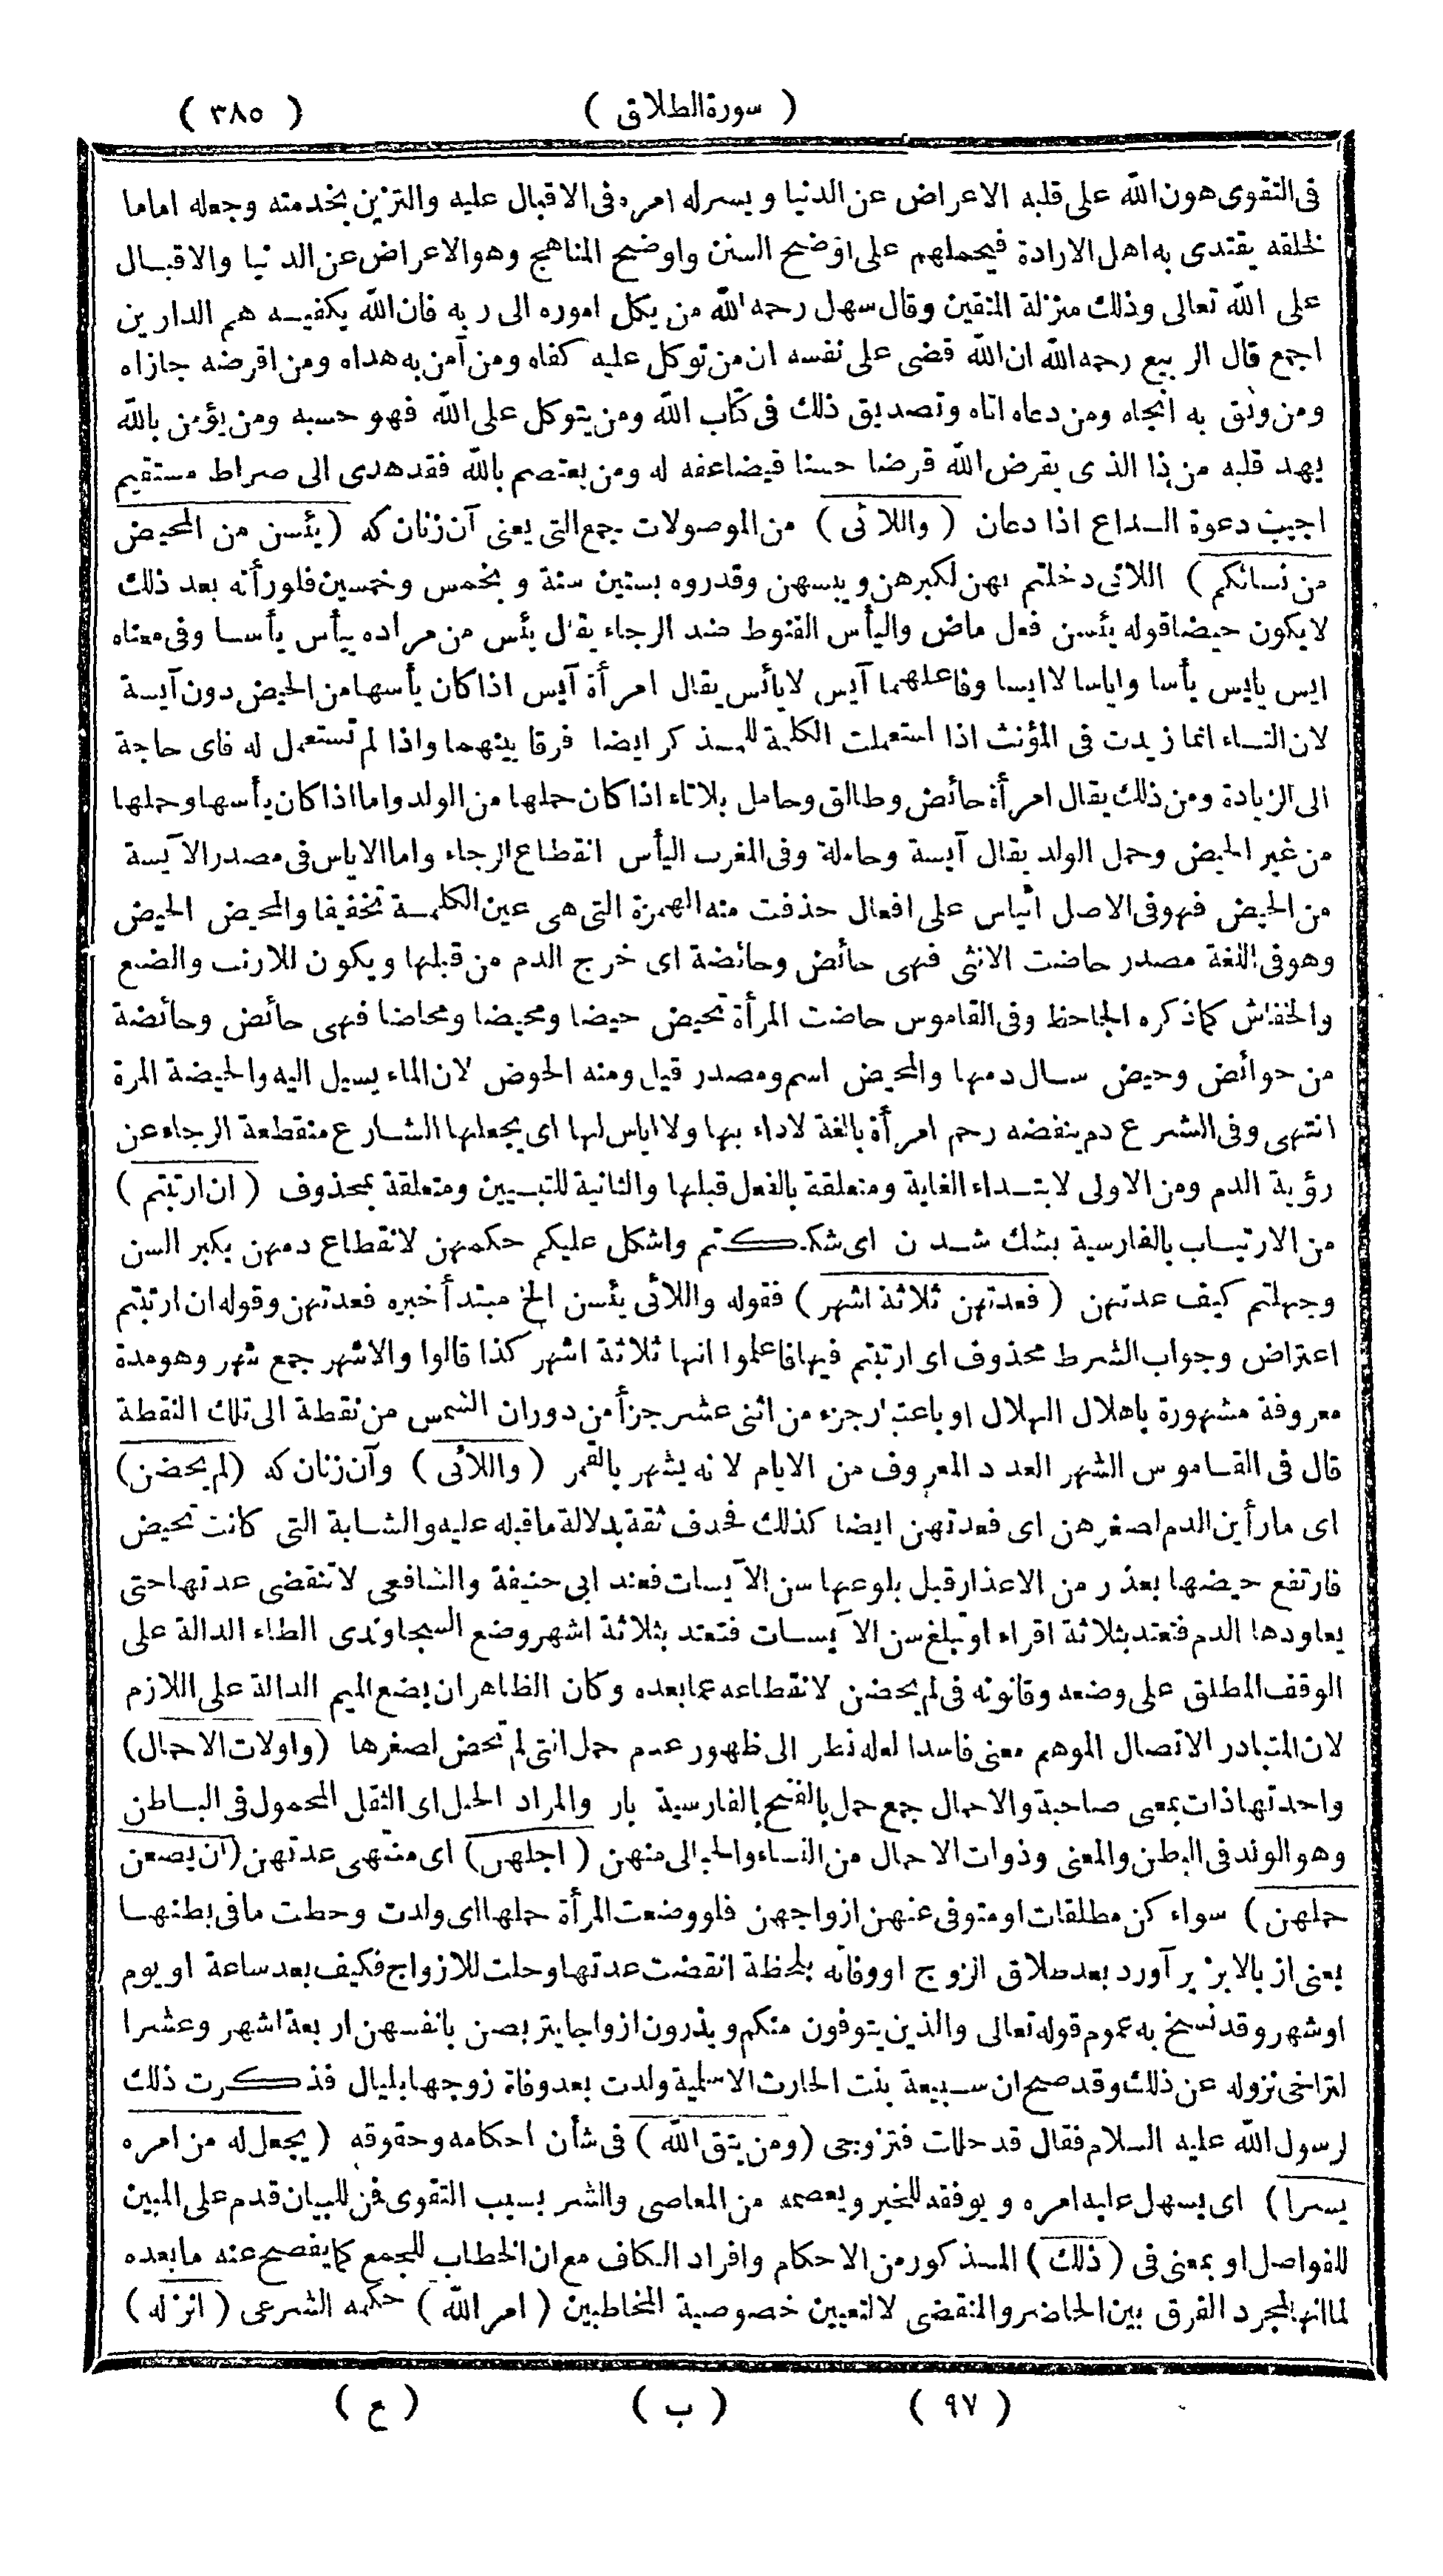 ( سورة الطلاق ) ( ٣٨٥ )
فى التقوى هون الله على قلبه الاعراض عن الدنيا ويسر له امره فى الاقبال عليه والتزين بخدمته وجعله اماما
لخلقه يقتدى به اهل الارادة فيحملهم على اوضح السنن واوضح المناهج وهو الاعراض عن الدنيا والاقبال
على الله تعالى وذلك منزلة المتقين وقال سهل رحمه الله من يكل اموره الى ربه فان الله يكفيه هم الدارين
اجمع قال الربيع رحمه الله ان الله قضى على نفسه ان من توكل عليه كفاه ومن آمن به هداه ومن اقرضه جازاه
ومن وثق به انجاه ومن دعاه اتاه وتصديق ذلك فى كتاب الله ومن يتوكل على الله فهو حسبه ومن يؤمن بالله
يهد قلبه من ذا الذى يقرض الله قرضا حسنا فيضاعفه له ومن يعتصم بالله فقد هدى الى صراط مستقيم
اجيب دعوة الداع اذا دعان ( واللائى ) من الموصولات جمع التى يعنى آن زنان كه ( يئسن من المحيض
من نسائكم ) اللاتى دخلتم بهن لكبرهن ويبسهن وقدروه بستين سنة و بخمس وخمسين فلو رأته بعد ذلك
لا يكون حيضا قوله يئسن فعل ماض واليأس القنوط ضد الرجاء يقال يئس من مراده ييأس يأسا وفى معناه
ايس يايس يأسا واياسا لا ايسا وفاعلهما آيس لا يائس يقال امرأة آيس اذا كان يأسها من الحيض دون آيسة
لان التاء انما زيدت فى المؤنث اذا استعملت الكلمة للمذكر ايضا فرقا بينهما واذا لم تستعمل له فاى حاجة
الى الزيادة ومن ذلك يقال امرأة حائض وطالق وحامل بلا تاء اذا كان حملها من الولد واما اذا كان يأسها وحملها
من غير الحيض وحمل الولد يقال آيسة وحاملة وفى المغرب اليأس انقطاع الرجاء واما الاياس فى مصدر الآيسة
من الحيض فهو فى الاصل ائياس على افعال حذفت منه الهمزة التى هى عين الكلمة تخفيفا والمحيض الحيض
وهو فى اللغة مصدر حاضت الانثى فهى حائض وحائضة اى خرج الدم من قبلها ويكون للارنب والضبع
والخفاش كما ذكره الجاحظ وفى القاموس حاضت المرأة تحيض حيضا ومحيضا ومحاضا فهى حائض وحائضة
من حوائض وحيض سال دمها والمحيض اسم ومصدر قيل ومنه الحوض لان الماء يسيل اليه والحيضة المرة
انتهى وفى الشرع دم ينفضه رحم امرأة بالغة لا داء بها ولا اياس لها اى يجعلها الشارع منقطعة الرجاء عن
رؤية الدم ومن الاولى لابتداء الغاية ومتعلقة بالفعل قبلها والثانية للتبيين ومتعلقة بمحذوف ( ان ارتبتم )
من الارتياب بالفارسية بشك شدن اى شككتم واشكل عليكم حكمهن لانقطاع دمهن بكبر السن
وجهلتم كيف عدتهن ( فعدتهن ثلاثة اشهر ) فقوله واللائى يئسن الخ مبتدأ خبره فعدتهن وقوله ان ارتبتم
اعتراض وجواب الشرط محذوف اى ارتبتم فيها فاعلموا انها ثلاثة اشهر كذا قالوا والاشهر جمع شهر وهو مدة
معروفة مشهورة باهلال الهلال او باعتبار جزء من اثنى عشر جزأ من دوران الشمس من نقطة الى تلك النقطة
قال فى القاموس الشهر العدد المعروف من الايام لانه يشهر بالقمر ( واللائى ) وآن زنان كه ( لم يحضن )
اى ما رأين الدم لصغرهن اى فعدتهن ايضا كذلك فحذف ثقة بدلالة ما قبله عليه والشابة التى كانت تحيض
فارتفع حيضها بعذر من الاعذار قبل بلوغها سن الآيسات فعند ابى حنيفة والشافعى لا تنقضى عدتها حتى
يعاودها الدم فتعتد بثلاثة اقراء او تبلغ سن الآيسات فتعتد بثلاثة اشهر وضع السجاوندى الطاء الدالة على
الوقف المطلق على وضعه وقانونه فى لم يحضن لانقطاعه عما بعده وكان الظاهر ان يضع الميم الدالة على اللازم
لان المتبادر الاتصال الموهم معنى فاسدا لعله نظر الى ظهور عدم حمل التى لم تحض لصغرها ( واولات الاحمال )
واحدتها ذات بمعنى صاحبة والاحمال جمع حمل بالفتح بالفارسية بار والمراد الحبل اى الثقل المحمول فى الباطن
وهو الولد فى البطن والمعنى وذوات الاحمال من النساء والحبالى منهن ( اجلهن ) اى منتهى عدتهن ( ان يضعن
حملهن ) سواء كن مطلقات او متوفى عنهن ازواجهن فلو وضعت المرأة حملها اى ولدت وحطت ما فى بطنها
يعنى از بالا بزير آورد بعد طلاق الزوج او وفاته بلحظة انقضت عدتها وحلت للازواج فكيف بعد ساعة او يوم
او شهر وقد نسخ به عموم قوله تعالى والذين يتوفون منكم ويذرون ازواجا يتربصن بانفسهن اربعة اشهر وعشرا
لتراخى نزوله عن ذلك وقد صح ان سبيعة بنت الحارث الاسلمية ولدت بعد وفاة زوجها بليال فذكرت ذلك
لرسول الله عليه السلام فقال قد حللت فتزوجى ( ومن يتق الله ) فى شأن احكامه وحقوقه ( يجعل له من امره
يسرا ) اى يسهل عليه امره ويوفقه للخير ويعصمه من المعاصى والشر بسبب التقوى فمن للبيان قدم على المبين
للفواصل او بمعنى فى ( ذلك ) المذكور من الاحكام وافراد الكاف مع ان الخطاب للجمع كما يفصح عنه ما بعده
لما انها لمجرد الفرق بين الحاضر والمنقضى لا لتعيين خصوصية المخاطبين ( امر الله ) حكمه الشرعى ( انزله )
( ٩٧ ) ( ب ) ( ع )